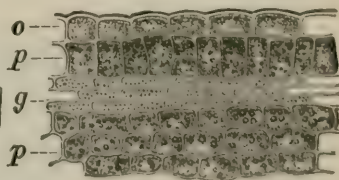 o
p
g
p